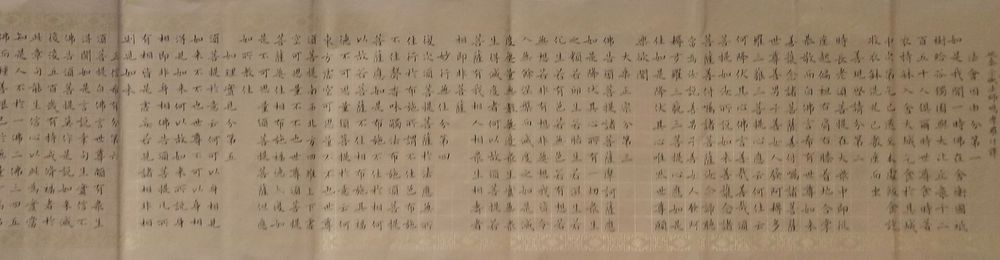 法會因由分第一
如是我聞一時佛在舍衛國祇
樹給孤獨園與大比丘眾千二
百五十人俱爾時世尊食時著
衣持鉢入舍衛大城乞食於其城
中次第乞已還至本處飯食訖
收衣鉢洗足已敷座而坐
善現啟請分第二
時長老須菩提在大眾中即從
座起偏袒右肩右膝著地合掌
恭敬而白佛言希有世尊如來
善護念諸菩薩善付囑諸菩薩
世尊善男子善女人發阿耨多
羅三藐三菩提心應云何住云
何降伏其心佛言善哉善哉須
菩提如汝所說如來善護念諸
菩薩善付囑諸菩薩汝今諦聽
當為汝說善男子善女人發阿
耨多羅三藐三菩提心應如是
住如是降伏其心唯然世尊願
樂欲聞
大乘正宗分第三
佛告須菩提諸菩薩摩訶薩應
如是降伏其心所有一切眾生
之類若卵生若胎生若濕生若
化生若有色若無色若有想若
無想若非有想非無想我皆令
入無餘涅槃而滅度之如是滅
度無量無數無邊眾生實無眾
生得滅度者何以故須菩提若
菩薩有我相人相眾生相壽者
相即非菩薩
妙行無住分第四
復次須菩提菩薩於法應無所
住行於布施所謂不住色布施
不住聲香味觸法布施須菩提
菩薩應如是布施不住於相何
以故若菩薩不住相布施其福
德不可思量須菩提於意云何
東方虛空可思量不不也世尊
須菩提南西北方四維上下虛
空可思量不不也世尊須菩提
菩薩無住相布施福德亦復如
是不可思量須菩提菩薩但應
如所教住
如理實見分第五
須菩提於意云何可以身相見
如來不不也世尊不可以身相
得見如來何以故如來所說身
相即非身相佛告須菩提凡所
有相皆是虛妄若見諸相非相
則見如來
正信希有分第六
須菩提白佛言世尊頗有眾生
得聞如是言說章句生實信不
佛告須菩提莫作是說如來滅
後後五百歲有持戒修福者於
此章句能生信心以此為實當
知是人不於一佛二佛三四五
佛而種善根已於無量千